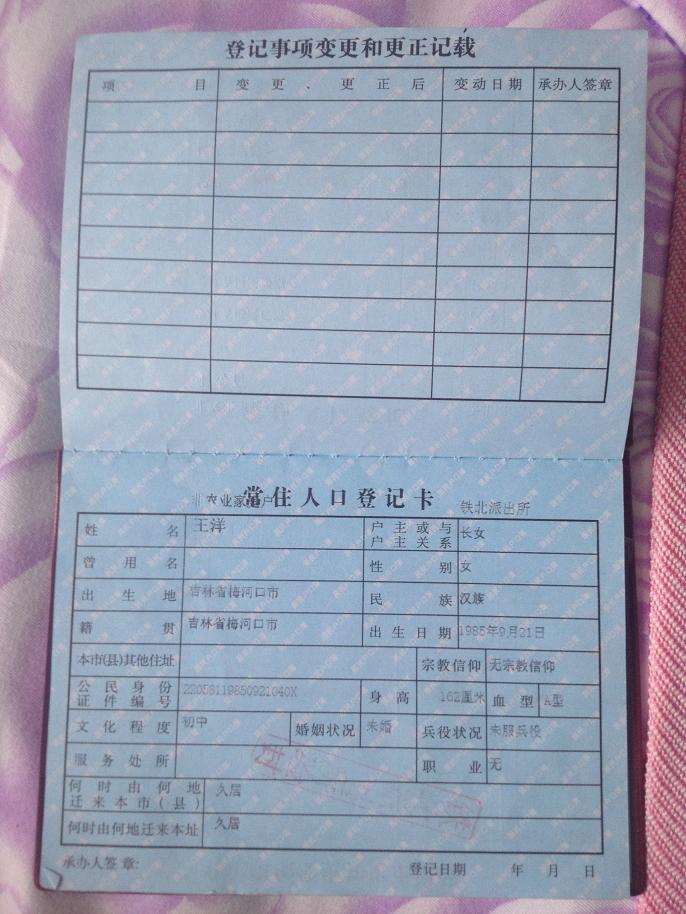 登记事项变更和更正记载
项目 变更、更正后 变动日期 承办人签章
非农业家庭户 常住人口登记卡 铁北派出所
姓名 王洋 户主或与户主关系 长女
曾用名 性别 女
出生地 吉林省梅河口市 民族 汉族
籍贯 吉林省梅河口市 出生日期 1985年9月21日
本市(县)其他住址 宗教信仰 无宗教信仰
公民身份证件编号 22058119850921040X 身高 162厘米 血型 A型
文化程度 初中 婚姻状况 未婚 兵役状况 未服兵役
服务处所 职业 无
何时由何地迁来本市(县) 久居
何时由何地迁来本址 久居
承办人签章: 登记日期 年 月 日